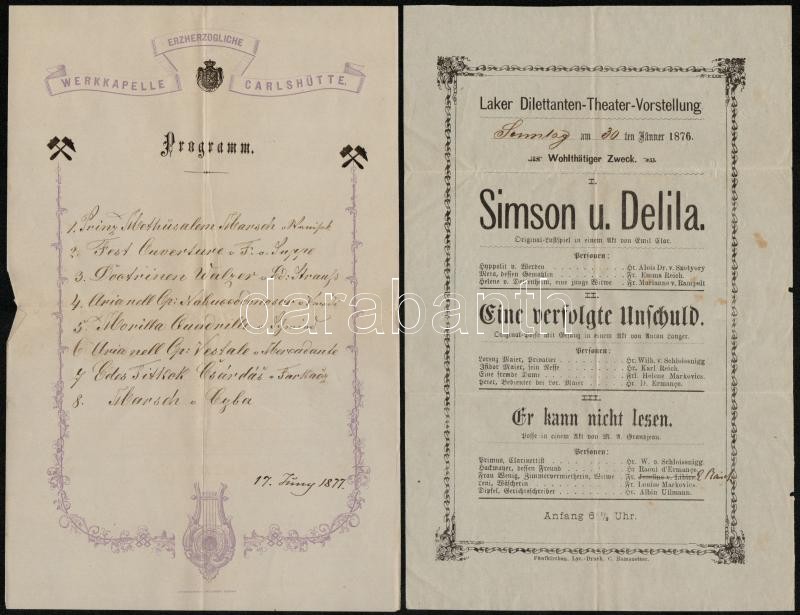 ERZHERZOGLICHE
WERKKAPELLE CARLSHÜTTE.
Programm.
1. Prinz Methusalem Marsch v
2. Fest Ouverture v F. v. Suppe
3. Doctrinen Walzer v Ed: Strauß
4. Aria nell Op:
5. Morilla Quadrille v
6. Aria nell Op: Vestale v Mercadante
7. Edes Titkok Csárdás v Farkas
8. Marsch v Czba
17. Juny 1877.
Laker Dilettanten-Theater-Vorstellung
Sonntag am 30 ten Jänner 1876.
Wohlthätiger Zweck.
I.
Simson u. Delila.
Original-Lustspiel in einem Akt von Emil Clar.
Personen:
Hyppolit v. Werden Hr. Alois Dr. v. Szotyory
Meta, dessen Gemahlin Fr. Emma Reich.
Helene v. Dassenheim, eine junge Witwe Fr. Marianne v. Rampelt
II.
Eine verfolgte Unschuld.
Original-Posse mit Gesang in einem Akt von Anton Langer.
Personen:
Lorenz Maier, Privatier Hr. Wilh. v. Schloissnigg
Isidor Maier, sein Neffe Hr. Karl Reich.
Eine fremde Dame Frl. Helene Markovics.
Peter, Bedienter bei Lor. Maier Hr. D. Ermanço.
III.
Er kann nicht lesen.
Posse in einem Akt von M. A. Grandjean.
Personen:
Primus, Clarinettist Hr. W. v. Schloissnigg.
Hackmayer, dessen Freund Hr Raoul d'Ermanço.
Frau Wenig, Zimmervermietherin, Witwe Fr. E. Reich
Leni, Wäscherin Fr. Louise Markovics.
Dipfel, Gerichtsschreiber Hr. Albin Ullmann.
Anfang 6 1/2 Uhr.
Fünfkirchen, Lyc.-Druck. C. Ramazetter.
darabanth